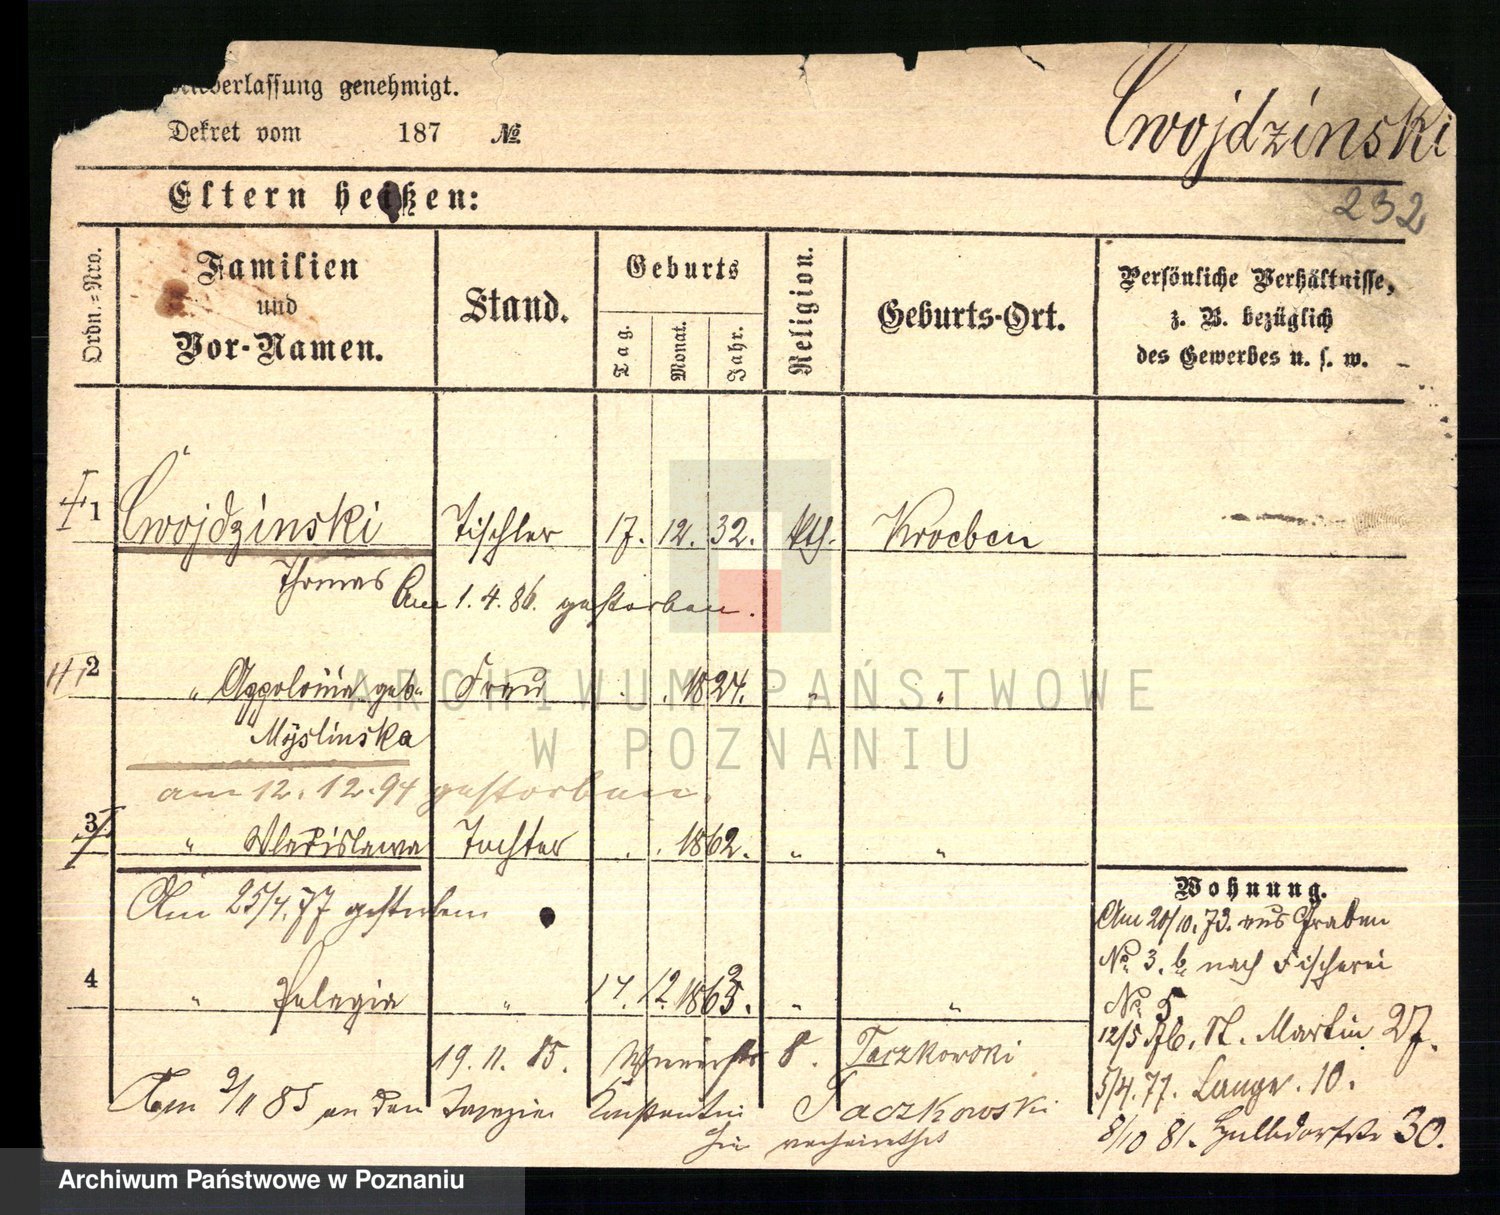 Niederlassung genehmigt.
Dekret vom 187 №
Cwojdzinski
Eltern heißen:
232
Ordn.=Nro.
Familien
und
Vor-Namen.
Stand.
Geburts
Tag.
Monat.
Jahr.
Religion.
Geburts-Ort.
Persönliche Verhältnisse,
z. B. bezüglich
des Gewerbes u. s. w.
1 Cwojdzinski Tischler 17. 12. 32. kth. Kroeben
Thomas Am 1.4.86. gestorben.
2 " Appolonia geb. Frau . . 1824. " "
Myslinska
am 12.12.94 gestorben.
3 " Wladislawa Tochter . . 1862. " "
Am 25/4.77 gestorben
4 " Pelagia " 17. 12. 1863. " "
19.11.85. 8. Taczkowski
Am 2/11 85 an den Konstantin Taczkowski
hie verheirathet
Wohnung.
Am 20/10.73. aus Graben
No. 3.b nach Fischerei
No. 5
12/5 St. Martin 27.
5/4.77. Lange. 10.
8/10 81. Halbdorfstr 30.
ARCHIWUM PAŃSTWOWE
W POZNANIU
Archiwum Państwowe w Poznaniu